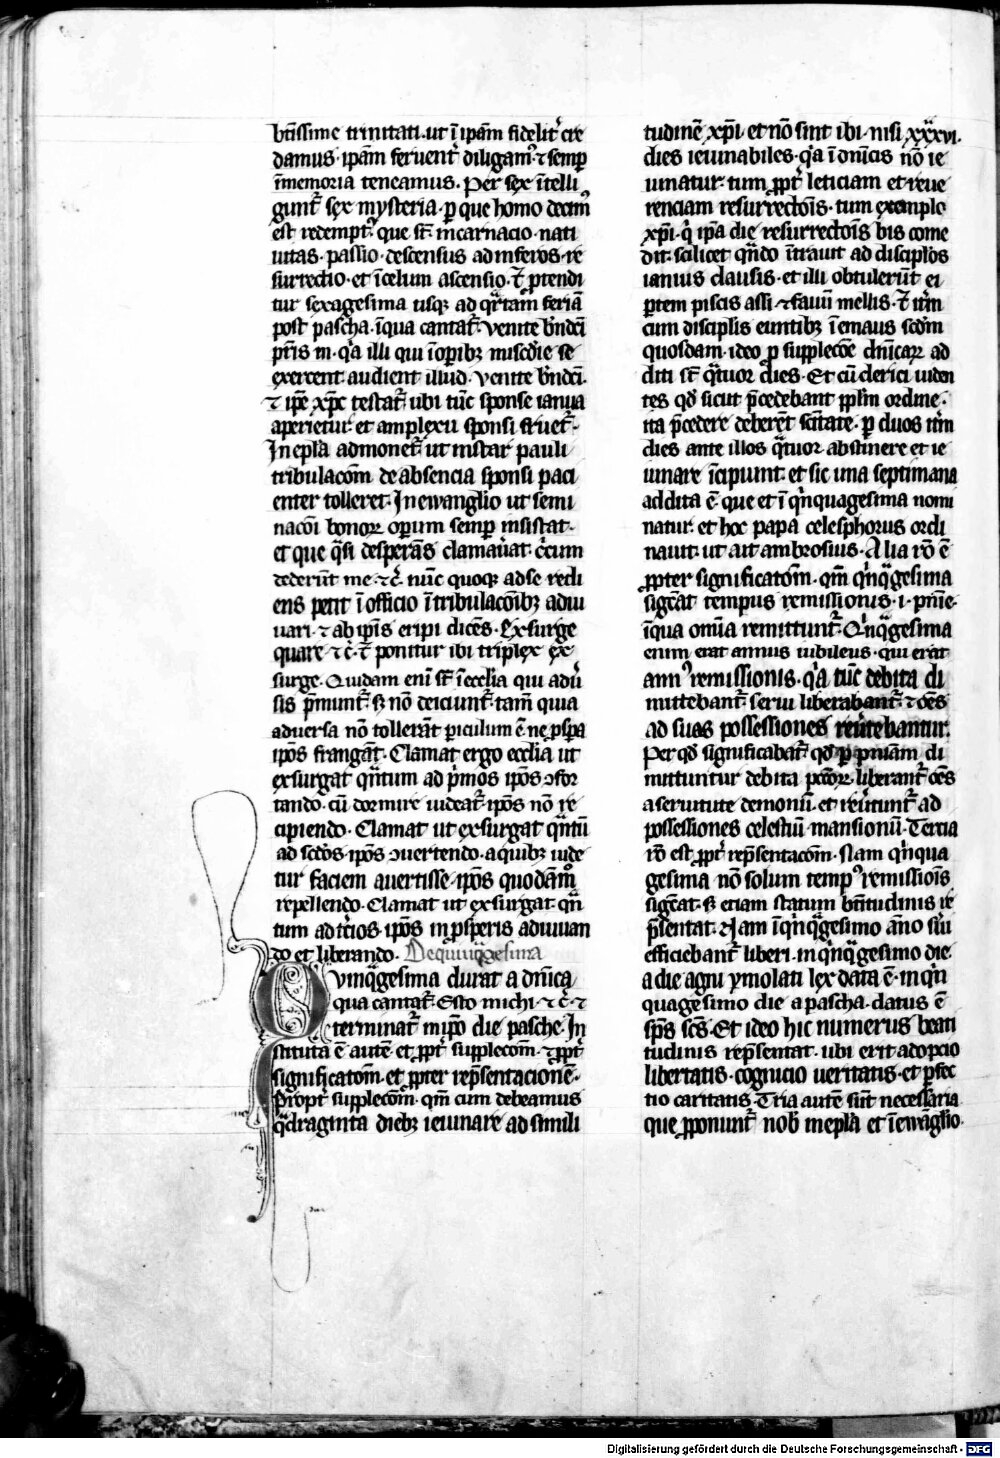 btīssime trinitati. ut ī ip̄am fideliꝉ cre
damus. ip̄am feruenꝉ diligam⁹. ⁊ semꝑ
īmemoria teneamus. Per sex ītelli
gunt̄ sex mysteria. ꝑ que homo decim⁹
est redempt⁹. que st̄ incarnacio. nati
uitas. passio. descensus ad inferos. re
surrectio. et īcelum ascensio. ⁊ ꝓtendi
tur sexagesima usqꝫ ad qͣrtam feriā
post pascha. īqua cantat̄. Venite bn̄dc̄i
pr̄is m̄. qͥa illi qui ī oꝑibꝫ misc̄die se
exercent. audient illud. Venite bn̄dc̄i.
⁊ ip̄e xp̄c testat̄ ubi tūc sponse ianua
aperietur. et amplexu sponsi fruet̄.
In ep̄la admonet̄ ut instar pauli
tribulac̄om de absencia sponsi paci
enter tolleret. In ewanglio ut semi
nac̄oi bonoꝝ oꝑum semꝑ insistat.
et que qͣsi desperās clamauat. Cͥcum
dederūt me. ⁊c̄. nūc quoqꝫ ad se redi
ens petit ī officio ī tribulac̄oibꝫ adiu
uari. ⁊ ab ip̄is eripi dicēs. Exsurge
quare ⁊c̄. ⁊ ponitur ibi triplex ex
surge. Quidam eni st̄ ī ecc̄lia qui aduͥ
sis p̄munt̄. sꝫ nō deiciunt̄. tam̄ quia
aduersa nō tollerāt ꝑiculum ē ne ꝓspa
ip̄os frangāt. Clamat ergo ecclīa ut
exsurgat qͣntum ad pͥmos ip̄os ↄfor
tando. cū dormire uideat̄. ip̄os nō re
cipiendo. Clamat ut exsurgat qͣntū
ad sc̄dos. ip̄os ↄuertendo. a quibꝫ uide
tur faciem auertisse. ip̄os quodām⁰
repellendo. Clamat ut exsurgat qͣn
tum ad tͥcios. ip̄os in ꝓsperis adiuuan
do et liberando. De quinqͣgesima
Quinqͣgesima durat a dn̄ica
qua cantat̄. Esto michi. ⁊c̄. ⁊
terminat̄ in ip̄o die pasche. In
stituta ē autē. et ꝓpꝉ supplec̄om. ⁊ ꝓpꝉ
significatōm. et ꝓpter rep̄sentacionē.
Propꝉ supplec̄om. qm̄ cum debeamus
qͣdraginta diebꝫ ieiunare ad simili
tudinē xp̄i. et nō sint ibi. nisi xxxvi.
dies ieiunabiles. qͥa ī dn̄icis nō ie
iunatur. tum ꝓpꝉ leticiam et reue
renciam resurrectōis. tum exemplo
xp̄i. qͥ ip̄a die resurrectōis bis come
dit. scilicet qn̄do ītrauit ad disciplōs
ianuis clausis. et illi obtulerūt ei
ꝑtem piscis assi ⁊ fauū mellis. ⁊ iꝉm
cum disciplis euntibꝫ ī emaus sc̄dm
quosdam. ideo ꝓ supplec̄oe dn̄icaꝝ ad
diti st̄ qͣtuor dies. Et cū clerici uiden
tes qd̄ sicut p̄cedebant ꝓplm ordine.
ita p̄cedere deberēt sc̄itate. ꝑ duos iꝉm
dies ante illos qͣtuor abstinere et ie
iunare īcipiunt. et sic una septimana
addita ē. que et ī qͥnquagesima nomi
natur. et hoc papa celesphorus ordi
nauit. ut ait ambrosius. Alia rō ē
ꝓpter significatōm. qm̄ qͥnqͣgesima
sigc̄at tempus remissionis. i. pn̄ie.
īqua om̄ia remittunt̄. Qͥnqͣgesima
enim erat annus iubileus. qui erat
ann⁹ remissionis. qͥa tūc debita di
mittebant̄. serui liberabant̄. ⁊ om̄s
ad suas possessiones reūtebantur.
Per qd̄ significabat̄ qd̄ ꝑ pniam di
mittuntur debita pccōꝝ. liberant̄ oēs
a seruitute demonū. et reūtunt̄ ad
possessiones celestiū mansionū. Tercia
rō est ꝓpꝉ rep̄sentacōm. Nam qͥnqua
gesima nō solum temp⁹ remissiōis
sigc̄at. sꝫ etiam statum btītudinis re
p̄sentat. Nam īqͥnqͣgesimo āno sͥui
efficiebant̄ liberi. in qͥnqͣgesimo die
a die agni ymolati lex data ē. in qͥn
quagesimo die a pascha. datus ē
sp̄s sc̄s. Et ideo hic numerus beati
tudinis rep̄sentat. ubi erit adopcio
libertatis. cognicio ueritatis. et ꝑfec
tio caritatis. Tria autē sūt necessaria
que ꝓponunt̄ nob̄ in ep̄la et ī ewāglio.
Digitalisierung gefördert durch die Deutsche Forschungsgemeinschaft - DFG